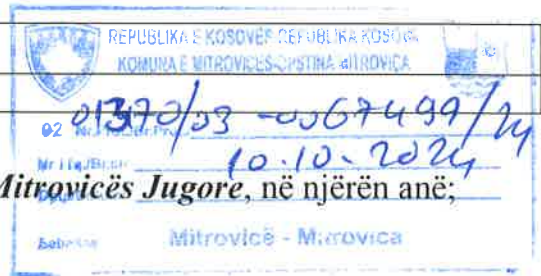 REPUBLIKA E KOSOVËS-REPUBLIKA KOSOVA
KOMUNA E MITROVICËS-OPSTINA MITROVICA
02
01370/03 -0067499/24
10.10.2024
Mitrovicës Jugore, në njërën anë;
Mitrovicë - Mitrovica